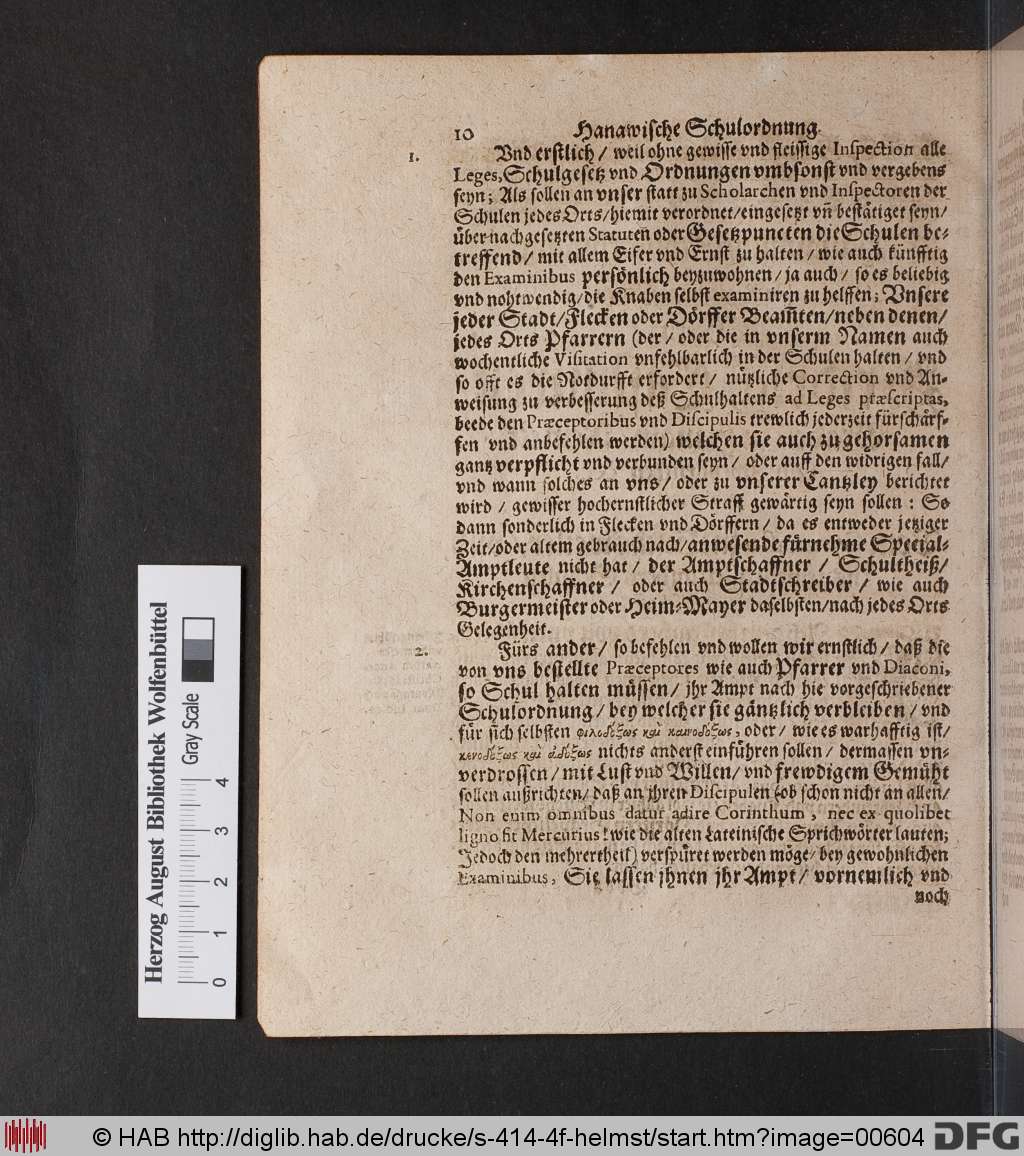 10 Hanawische Schulordnung.
1. Vnd erstlich / weil ohne gewisse vnd fleissige Inspection alle
Leges, Schulgesetz vnd Ordnungen vmbsonst vnd vergebens
seyn; Als sollen an vnser statt zu Scholarchen vnd Inspectoren der
Schulen jedes Orts/hiemit verordnet/eingesetzt vñ bestätiget seyn/
über nachgesetzten Statuten oder Gesetzpuncten die Schulen be-
treffend/ mit allem Eifer vnd Ernst zu halten / wie auch künfftig
den Examinibus persönlich beyzuwohnen / ja auch/ so es beliebig
vnd nohtwendig/die Knaben selbst examiniren zu helffen; Vnsere
jeder Stadt/Flecken oder Dörffer Beam̃ten/neben denen/
jedes Orts Pfarrern (der / oder die in vnserm Namen auch
wochentliche Visitation vnfehlbarlich in der Schulen halten / vnd
so offt es die Notdurfft erfordert/ nützliche Correction vnd An-
weisung zu verbesserung deß Schulhaltens ad Leges præscriptas,
beede den Præceptoribus vnd Discipulis trewlich jederzeit fürschärf-
fen vnd anbefehlen werden) welchen sie auch zu gehorsamen
gantz verpflicht vnd verbunden seyn/ oder auff den widrigen fall/
vnd wann solches an vns/ oder zu vnserer Cantzley berichtet
wird / gewisser hochernstlicher Straff gewärtig seyn sollen : So
dann sonderlich in Flecken vnd Dörffern/ da es entweder jetziger
Zeit/oder altem gebrauch nach/anwesende fürnehme Special-
Amptleute nicht hat / der Amptschaffner / Schultheiß/
Kirchenschaffner / oder auch Stadtschreiber / wie auch
Burgermeister oder Heim-Mayer daselbsten/nach jedes Orts
Gelegenheit.
2. Fürs ander/ so befehlen vnd wollen wir ernstlich/ daß die
von vns bestellte Præceptores wie auch Pfarrer vnd Diaconi,
so Schul halten müssen/ jhr Ampt nach hie vorgeschriebener
Schulordnung / bey welcher sie gäntzlich verbleiben/ vnd
für sich selbsten φιλοδόξως καὶ καινοδόξως, oder/ wie es warhafftig ist/
κενοδόξως καὶ ἀδόξως nichts anderst einführen sollen/ dermassen vn-
verdrossen/ mit Lust vnd Willen/ vnd frewdigem Gemüht
sollen außrichten/ daß an jhren Discipulen (ob schon nicht an allen/
Non enim omnibus datur adire Corinthum, nec ex quolibet
ligno fit Mercurius! wie die alten Lateinische Sprichwörter lauten;
Jedoch den mehrertheil) verspüret werden möge/ bey gewohnlichen
Examinibus, Sie lassen jhnen jhr Ampt/ vornemlich vnd
noch
Herzog August Bibliothek Wolfenbüttel
Gray Scale
0 1 2 3 4
© HAB http://diglib.hab.de/drucke/s-414-4f-helmst/start.htm?image=00604 DFG